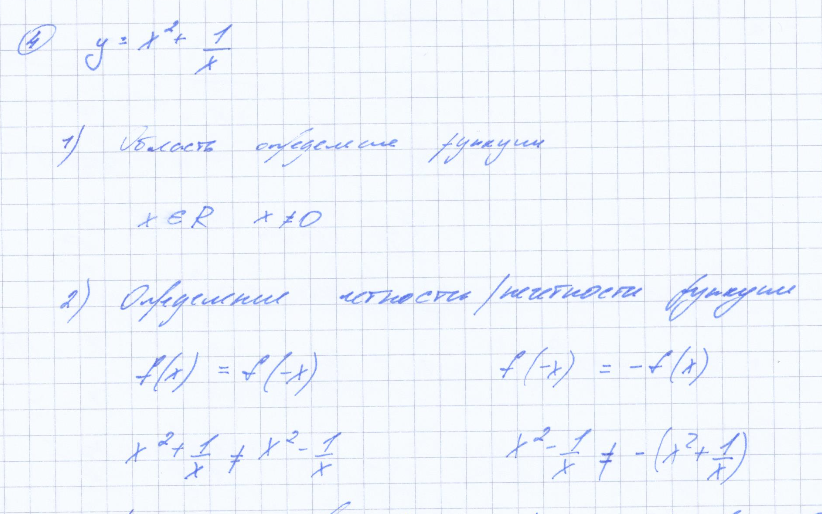 4 y = x² + 1/x
1) Область определение функции
x ∈ R x ≠ 0
2) Определение четности/нечетности функции
f(x) = f(-x) f(-x) = -f(x)
x² + 1/x ≠ x² - 1/x x² - 1/x ≠ -(x² + 1/x)